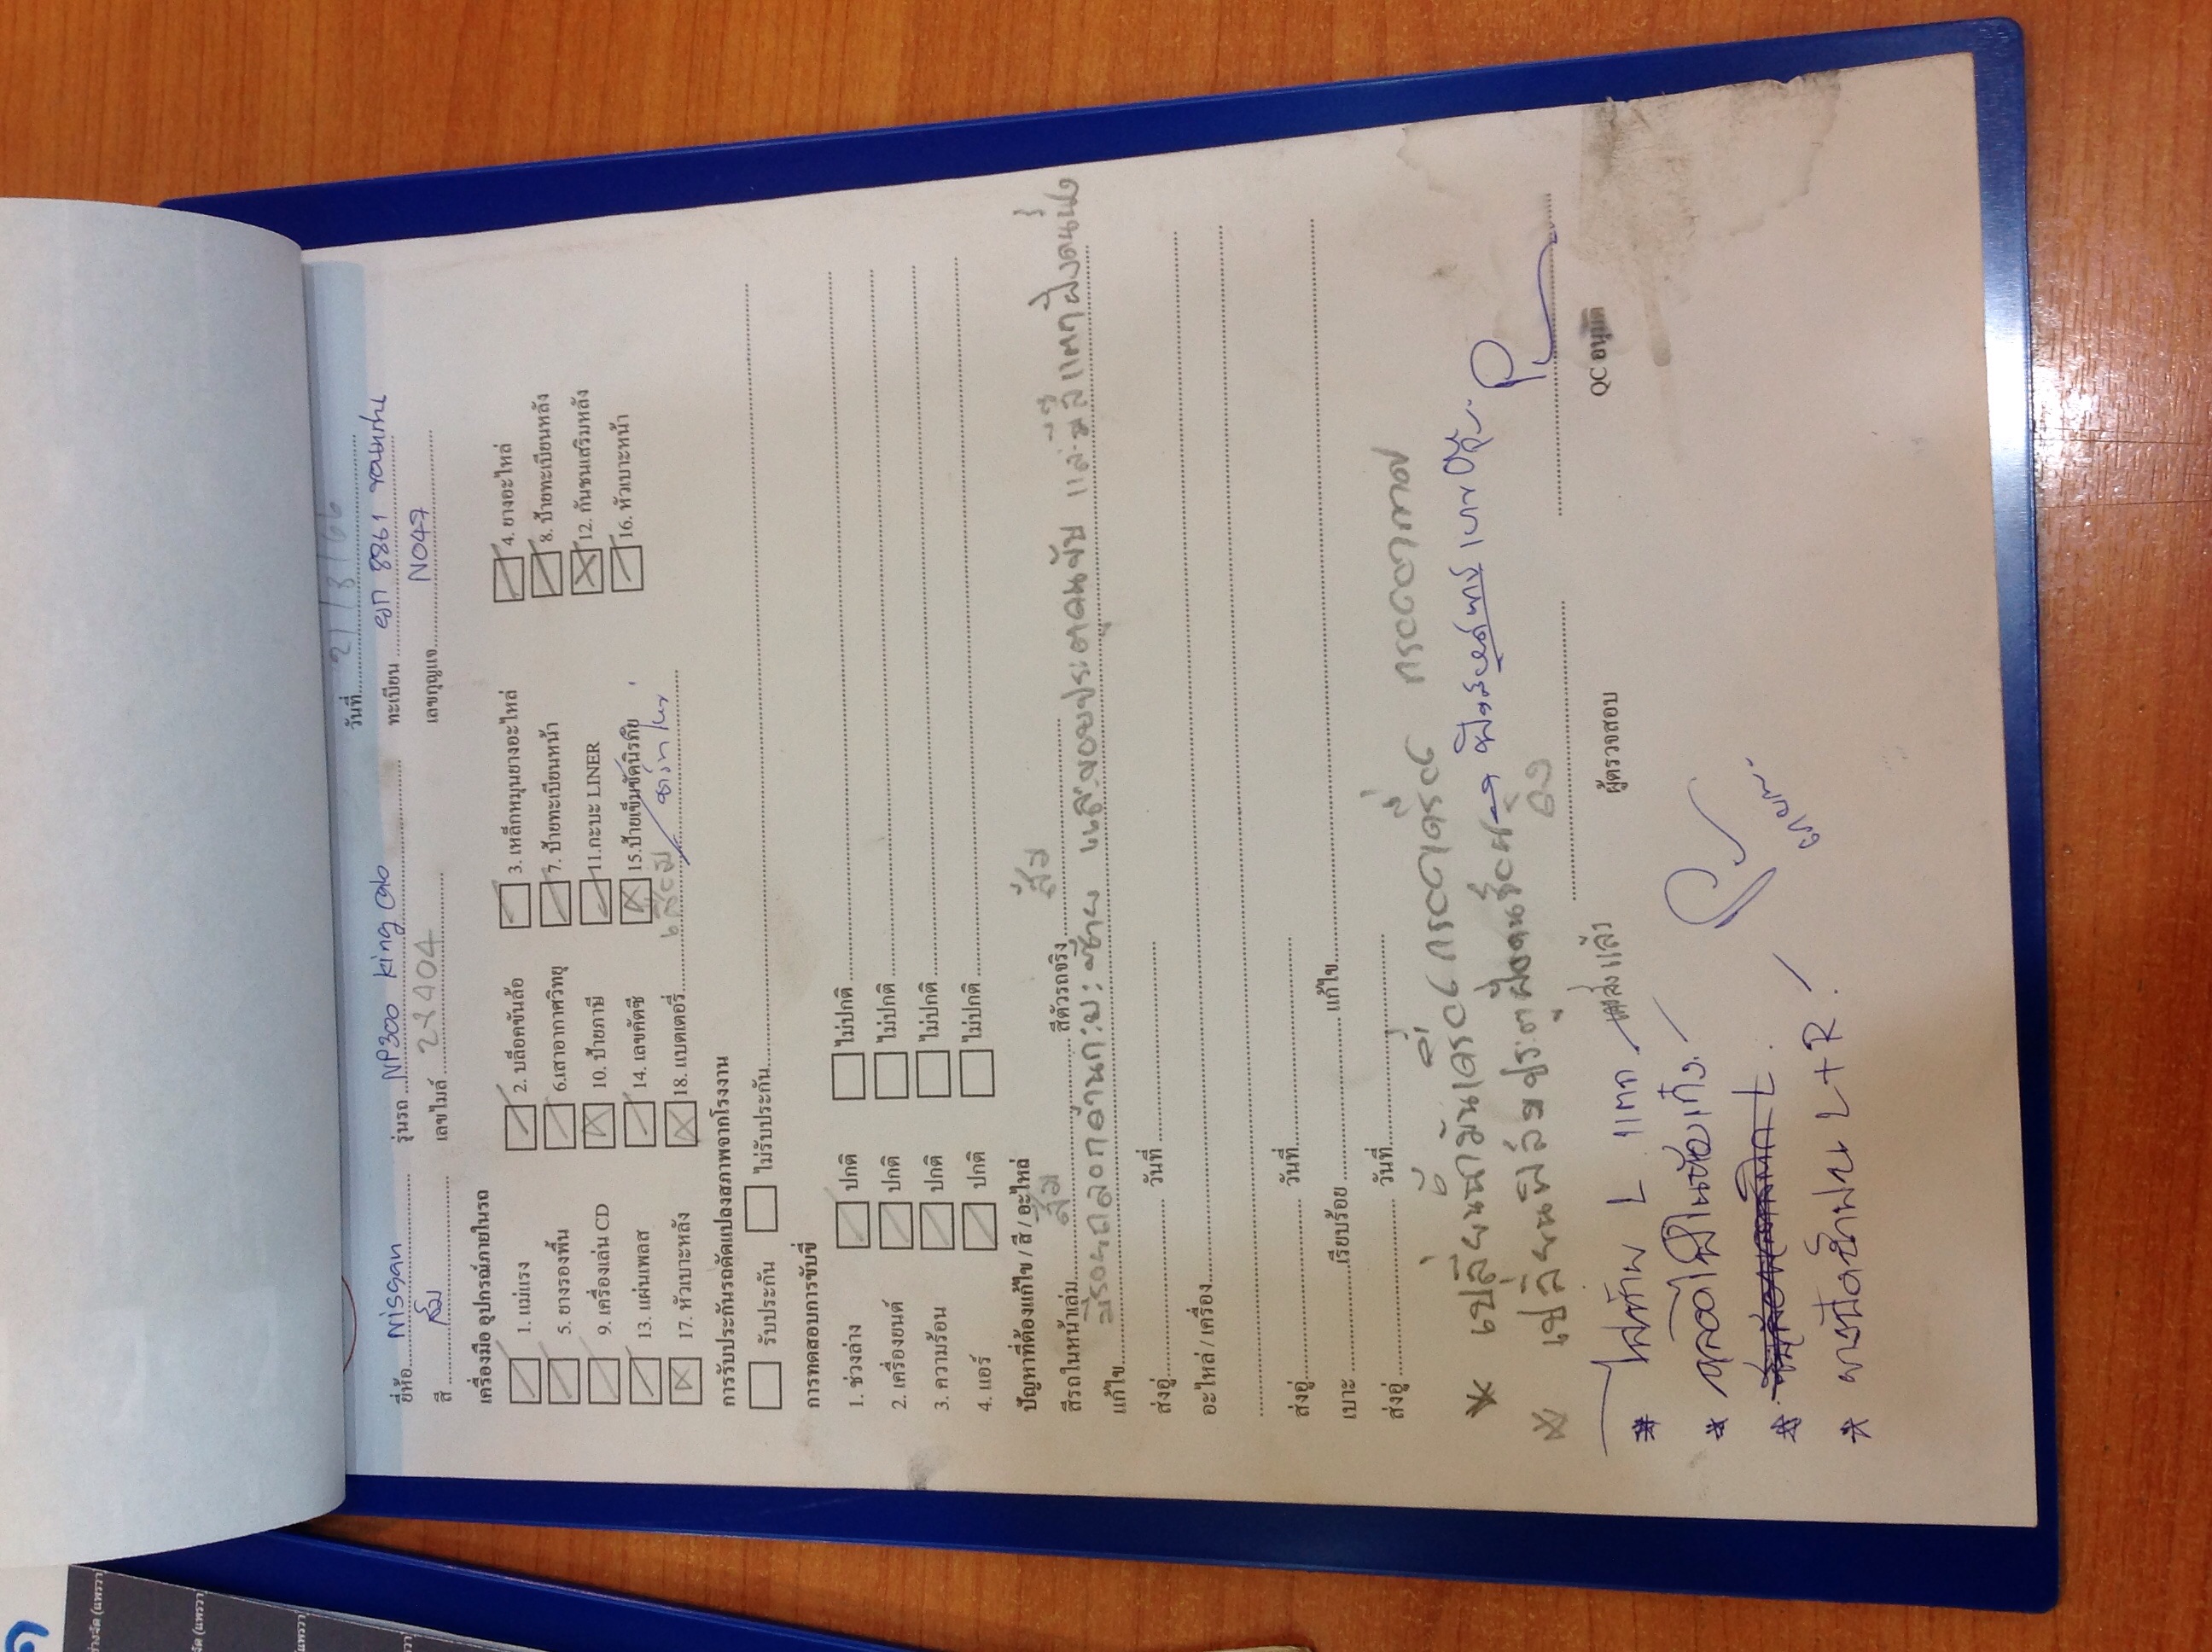 วันที่ 21/3/66
ยี่ห้อ Nissan รุ่นรถ NP300 King Cab ทะเบียน ยก 8861 ขอนแก่น
สี ส้ม เลขไมล์ 22404 เลขกุญแจ N047
เครื่องมือ อุปกรณ์ภายในรถ
1. แม่แรง 2. บล็อคขันล้อ 3. เหล็กหมุนยางอะไหล่ 4. ยางอะไหล่
5. ยางรองพื้น 6.เสาอากาศวิทยุ 7. ป้ายทะเบียนหน้า 8. ป้ายทะเบียนหลัง
9. เครื่องเล่น CD 10. ป้ายภาษี 11.กะบะ LINER 12. กันชนเสริมหลัง
13. แผ่นเพลส 14. เลขคัตซี 15.ป้ายเข็มขัดนิรภัย 16. หัวเบาะหน้า
17. หัวเบาะหลัง 18. แบตเตอรี่ เสื่อม
การรับประกันรถดัดแปลงสภาพจากโรงงาน
รับประกัน ไม่รับประกัน
การทดสอบการขับขี่
1. ช่วงล่าง ปกติ ไม่ปกติ
2. เครื่องยนต์ ปกติ ไม่ปกติ
3. ความร้อน ปกติ ไม่ปกติ
4. แอร์ ปกติ ไม่ปกติ
ปัญหาที่ต้องแก้ไข / สี / อะไหล่
สีรถในหน้าเล่ม ส้ม สีตัวรถจริง ส้ม
แก้ไข มีรอยถลอกด้านกะบะซ้าย และขอบประตูคนขับ และมีสีแตกฝั่งคนนั่ง
ส่งอู่ วันที่
อะไหล่ / เครื่อง
ส่งอู่ วันที่
เบาะ เรียบร้อย แก้ไข
ส่งอู่ วันที่
* เปลี่ยนน้ำมันเครื่อง กรองเครื่อง กรองอากาศ
* เปลี่ยนฟิล์มประตูฝั่งคนขับ
ผู้ตรวจสอบ QC อนุมัติ
* ไฟท้าย L แตก
* หลอดไฟในห้องเก๋ง
* ยางปัดน้ำฝน L+R